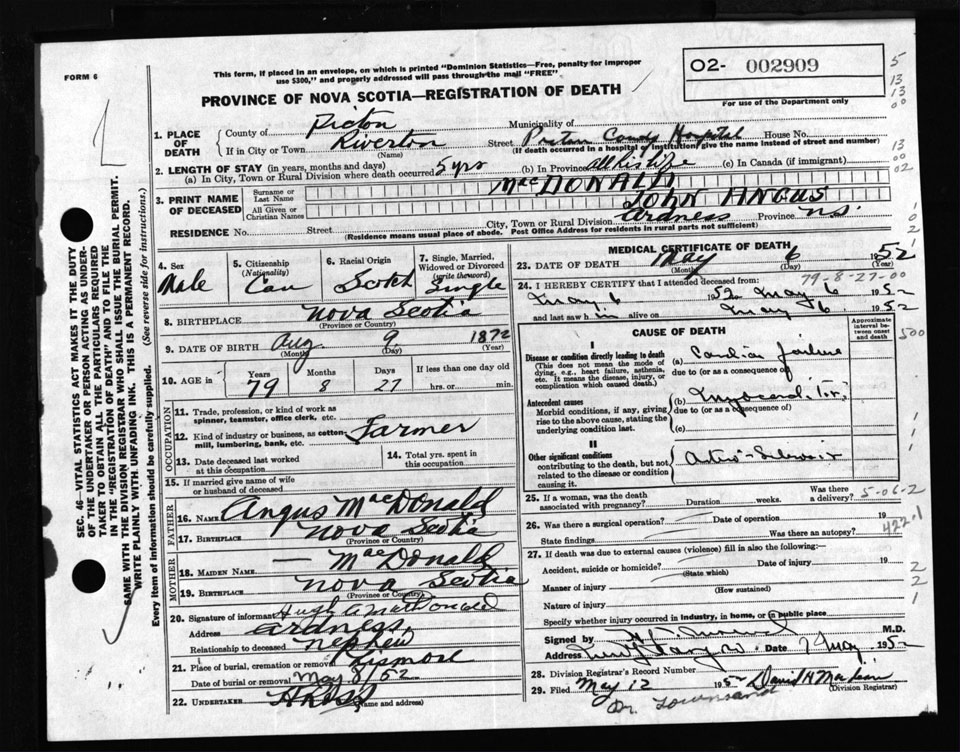 FORM 6
This form, if placed in an envelope, on which is printed "Dominion Statistics—Free, penalty for improper
use $300," and properly addressed will pass through the mail "FREE"
O2- 002909
For use of the Department only
PROVINCE OF NOVA SCOTIA—REGISTRATION OF DEATH
1. PLACE OF DEATH
County of Pictou Municipality of
If in City or Town Riverton (Name) Street Pictou County Hospital House No.
(If death occurred in a hospital or institution give the name instead of street and number)
2. LENGTH OF STAY (in years, months and days)
(a) In City, Town or Rural Division where death occurred 5 yrs (b) In Province all his life (c) In Canada (if immigrant)
3. PRINT NAME OF DECEASED
Surname or Last Name MacDONALD
All Given or Christian Names JOHN ANGUS
RESIDENCE No. Street City, Town or Rural Division ardness Province N.S.
(Residence means usual place of abode. Post Office Address for residents in rural parts not sufficient)
4. Sex Male
5. Citizenship (Nationality) Can
6. Racial Origin Scotch
7. Single, Married, Widowed or Divorced (write the word) Single
8. BIRTHPLACE Nova Scotia
(Province or Country)
9. DATE OF BIRTH Aug. 9 1872
(Month) (Day) (Year)
10. AGE in Years 79 Months 8 Days 27 If less than one day hrs. or min.
OCCUPATION
11. Trade, profession, or kind of work as spinner, teamster, office clerk, etc.
12. Kind of industry or business, as cotton-mill, lumbering, bank, etc. Farmer
13. Date deceased last worked at this occupation
14. Total yrs. spent in this occupation
15. If married give name of wife or husband of deceased
FATHER
16. NAME Angus MacDonald
17. BIRTHPLACE Nova Scotia
(Province or Country)
MOTHER
18. MAIDEN NAME — MacDonald
19. BIRTHPLACE Nova Scotia
(Province or Country)
20. Signature of informant Hugh A MacDonald
Address ardness.
Relationship to deceased nephew
21. Place of burial, cremation or removal Lismore
Date of burial or removal May 8/52
22. UNDERTAKER
(Name and address)
MEDICAL CERTIFICATE OF DEATH
23. DATE OF DEATH May 6 1952
(Month) (Day) (Year)
79-8-27-00
24. I HEREBY CERTIFY that I attended deceased from:
May 6 1952 May 6 1952
and last saw him alive on May 6 1952
CAUSE OF DEATH
Approximate interval between onset and death
I
Disease or condition directly leading to death
(This does not mean the mode of dying, e.g., heart failure, asthenia, etc. It means the disease, injury, or complication which caused death.)
(a) Cardiac failure
due to (or as a consequence of)
Antecedent causes
Morbid conditions, if any, giving rise to the above cause, stating the underlying condition last.
(b) Myocarditis
due to (or as a consequence of)
(c)
II
Other significant conditions
contributing to the death, but not related to the disease or condition causing it.
25. If a woman, was the death associated with pregnancy? Duration weeks. Was there a delivery?
5-06-2
26. Was there a surgical operation? Date of operation 19
State findings Was there an autopsy?
422.1
27. If death was due to external causes (violence) fill in also the following:
Accident, suicide or homicide? (State which) Date of injury 19
Manner of injury (How sustained)
Nature of injury
Specify whether injury occurred in industry, in home, or in public place
Signed by M.D.
Address Date 7 May 1952
28. Division Registrar's Record Number
29. Filed May 12 1952 David H
(Division Registrar)
Dr. Townsend
SEC. 46—VITAL STATISTICS ACT MAKES IT THE DUTY
OF THE UNDERTAKER OR PERSON ACTING AS UNDER-
TAKER TO OBTAIN ALL THE PARTICULARS REQUIRED
IN THE "REGISTRATION OF DEATH" AND TO FILE THE
SAME WITH THE DIVISION REGISTRAR WHO SHALL ISSUE THE BURIAL PERMIT.
WRITE PLAINLY WITH UNFADING INK. THIS IS A PERMANENT RECORD.
Every item of information should be carefully supplied. (See reverse side for instructions.)